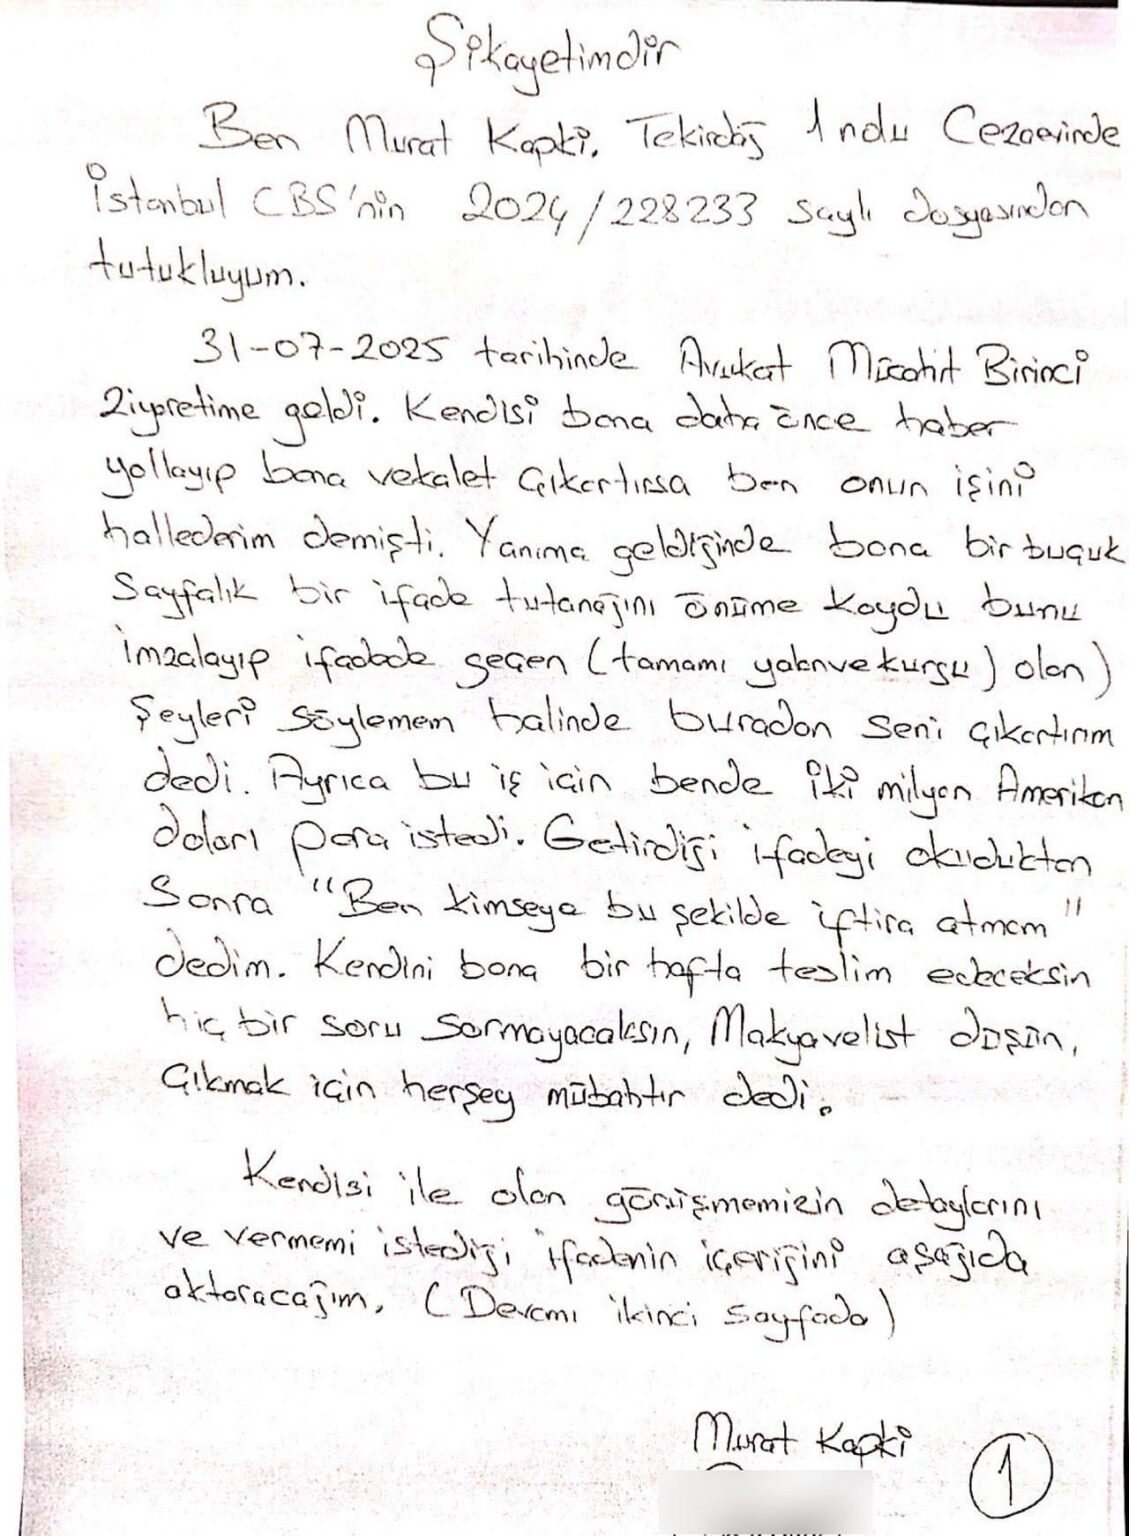 Şikayetimdir
Ben Murat Kapki. Tekirdağ 1 nolu Cezaevinde
İstanbul CBS'nin 2024/228233 saylı dosyasından
tutukluyum.
31-07-2025 tarihinde Avukat Mücahit Birinci
Ziyaretime geldi. Kendisi bana daha önce haber
yollayıp bana vekalet çıkartırsa ben onun işini
hallederim demişti. Yanıma geldiğinde bana bir buçuk
Sayfalık bir ifade tutanağını önüme koydu bunu
imzalayıp ifadede geçen (tamamı yalan ve kurgu) olan)
Şeyleri söylemem halinde buradan seni çıkartırım
dedi. Ayrıca bu iş için bende iki milyon Amerikan
doları para istedi. Getirdiği ifadeyi okuduktan
Sonra "Ben kimseye bu şekilde iftira atmam"
dedim. Kendini bana bir hafta teslim edeceksin
hiç bir soru sormayacaksın, Makyavelist düşün,
Çıkmak için herşey mübahtır dedi.
Kendisi ile olan görüşmemizin detaylarını
ve vermemi istediği ifadenin içeriğini aşağıda
aktaracağım. (Devamı ikinci sayfada)
Murat Kapki
1